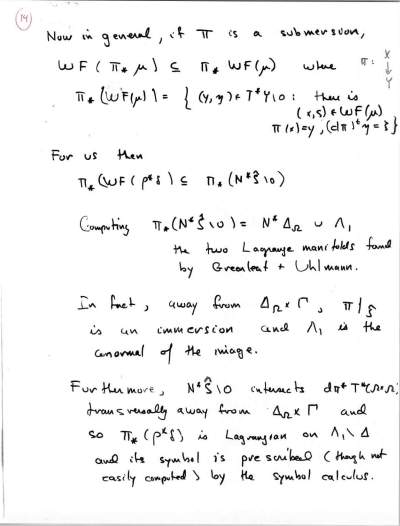 14
Now in general, if π is a submersion,
WF(π_* μ) ⊆ π_* WF(μ) where π: X ↓ Y
π_*(WF(μ)) = { (y, η) ∈ T*Y\0 : there is
(x, ξ) ∈ WF(μ)
π(x)=y, (dπ)^t η = ξ }
For us then
π_*(WF(ρ*δ)) ⊆ π_*(N*Ŝ\0)
Computing π_*(N*Ŝ\0) = N*Δ_Ω ∪ Λ_1
the two Lagrange manifolds found
by Greenleaf + Uhlmann.
In fact, away from Δ_Ω × Γ, π|Ŝ
is an immersion and Λ_1 is the
conormal of the image.
Furthermore, N*Ŝ\0 intersects dπ* T*(Ω×Ω)
transversally away from Δ_Ω × Γ and
so π_*(ρ*δ) is Lagrangian on Λ_1\Δ
and its symbol is prescribed (though not
easily computed) by the symbol calculus.